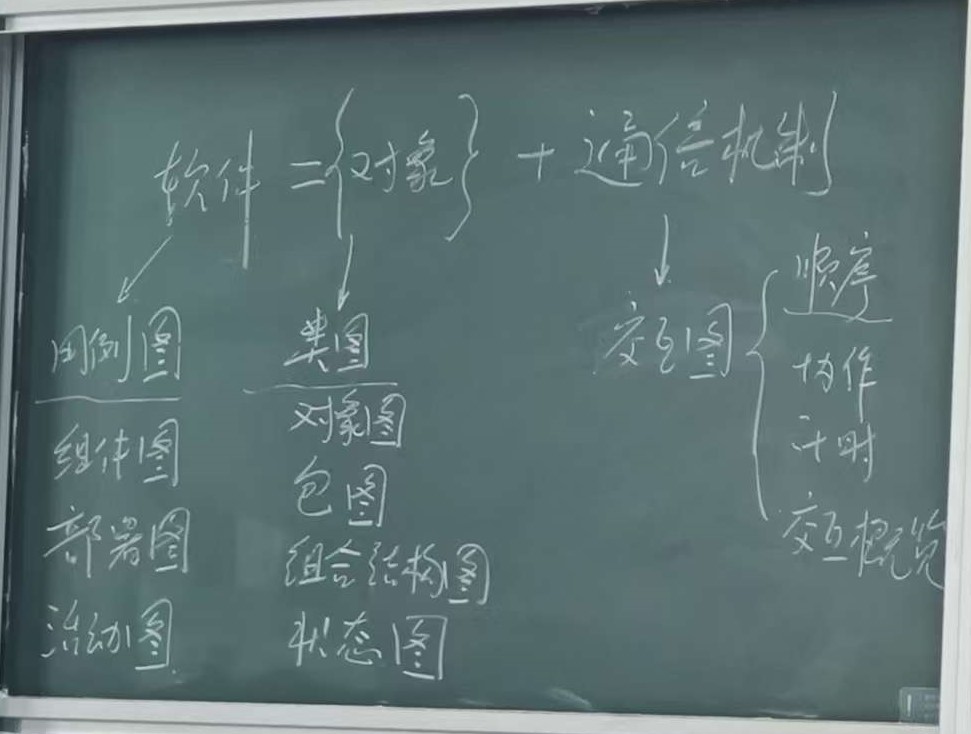 软件 = {对象} + 通信机制
用例图
组件图
部署图
活动图
类图
对象图
包图
组合结构图
状态图
交互图
顺序
协作
计时
交互概览